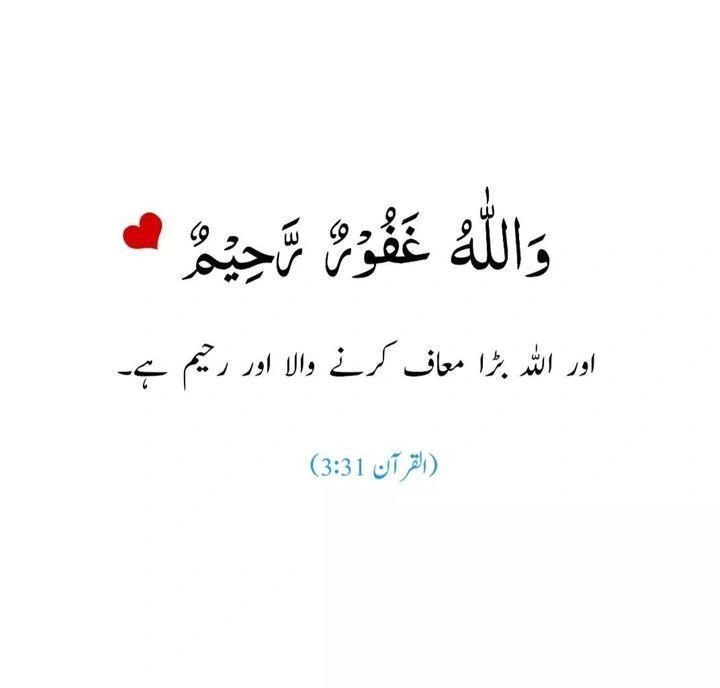 وَاللّٰهُ غَفُوْرٌ رَّحِيْمٌ
اور اللہ بڑا معاف کرنے والا اور رحیم ہے۔
(القرآن 3:31)